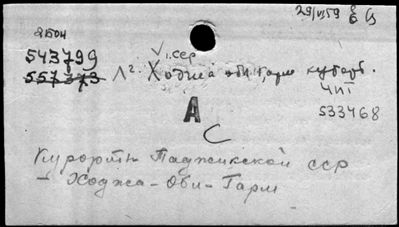 29/VI59
543799
557373
Ходжа оби Гарм курорт.
ЧИП
533468
А
С
Курорты Таджикской ССР
– Ходжа-Оби-Гарм